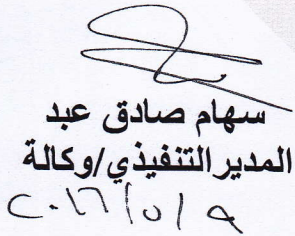 سهام صادق عبد
المدير التنفيذي/وكالة
٢٠١٦/٥/٩